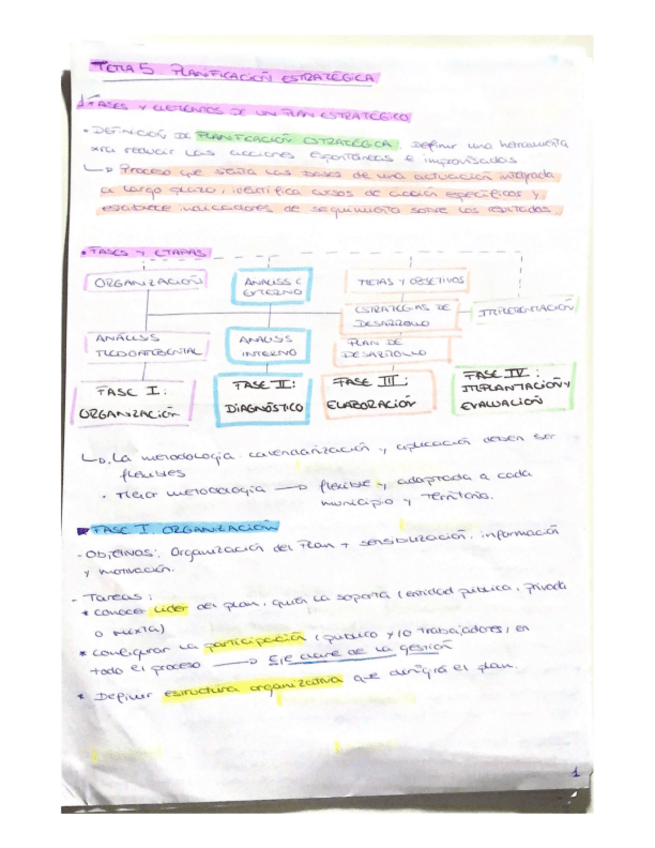 TEMA 5. PLANIFICACIÓN ESTRATÉGICA
FASES Y ELEMENTOS DE UN PLAN ESTRATÉGICO
• DEFINICIÓN DE PLANIFICACIÓN ESTRATÉGICA. Definir una herramienta
xra reducir las acciones espontáneas e improvisadas
↳ Proceso que sienta las bases de una actuación integrada
a largo plazo, identifica cursos de acción específicos y
establece indicadores de seguimiento sobre los resultados.
• FASES Y ETAPAS
ORGANIZACIÓN
ANÁLISIS
EXTERNO
METAS Y OBJETIVOS
ESTRATEGIAS DE
DESARROLLO
IMPLEMENTACIÓN
ANÁLISIS
ANÁLISIS
INTERNO
PLAN DE
DESARROLLO
FASE I:
ORGANIZACIÓN
FASE II:
DIAGNÓSTICO
FASE III:
ELABORACIÓN
FASE IV:
IMPLANTACIÓN Y
EVALUACIÓN
↳ La metodología, calendarización y aplicación deben ser
flexibles
• Mejor metodología → flexible y adaptada a cada
municipio y territorio.
FASE I. ORGANIZACIÓN
- Objetivos: Organización del Plan + sensibilización, información
y motivación.
- Tareas:
* conocer líder del plan, quién la soporta (entidad pública, privada
o mixta)
* configurar la participación (público y/o trabajadores) en
todo el proceso → Eje clave de la gestión
* Definir estructura organizativa que dirigirá el plan.
1